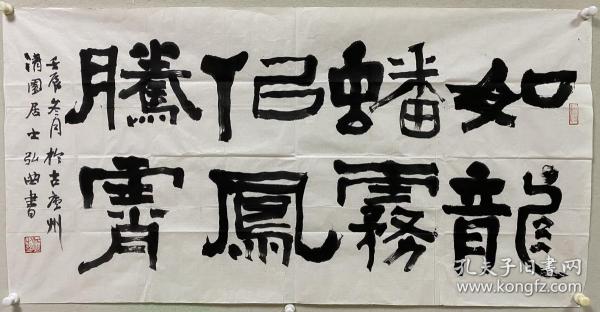 如龍
蟠霧
佀鳳
騰霄
壬辰冬月於古康州
清園居士弘曲書
孔夫子旧书网
www.kongfz.com